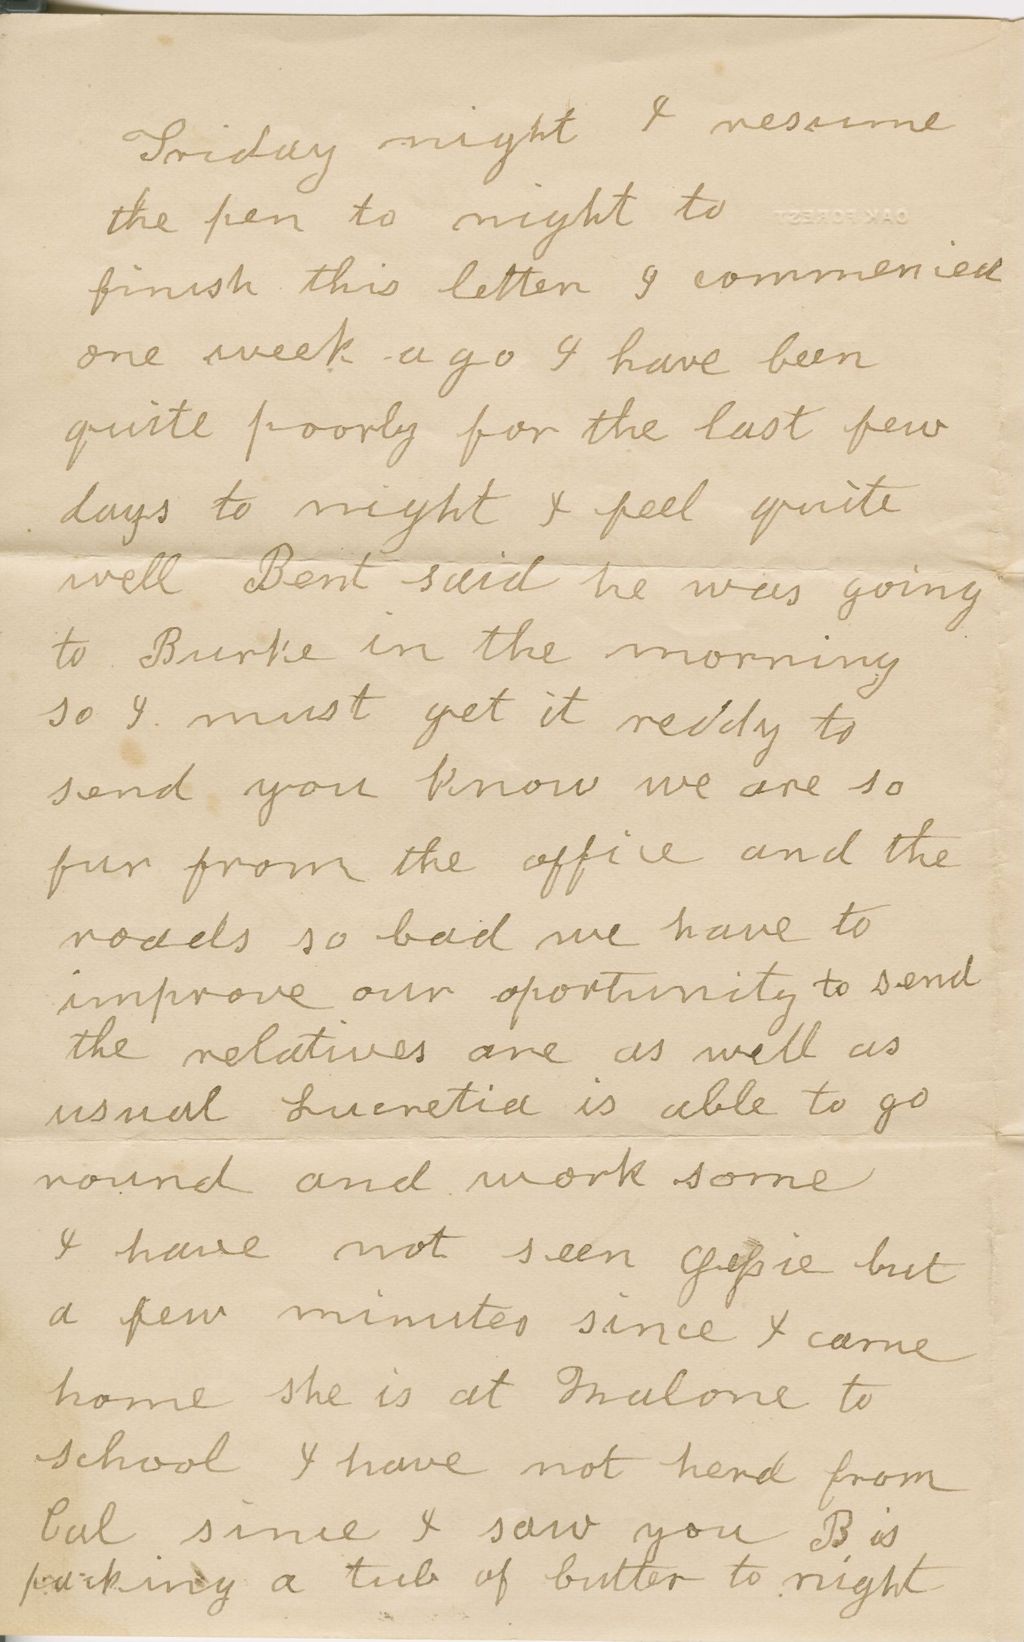 Friday night I resume
the pen to night to
OAK FOREST
finish this letter I commenied
one week ago I have been
quite poorly for the last few
days to night I feel quite
well Bent said he was going
to Burke in the morning
so I must get it reddy to
send you know we are so
fur from the office and the
roads so bad we have to
improve our oportunity to send
the relatives are as well as
usual Lucretia is able to go
round and work some
I have not seen but
a few minutes since I came
home she is at Malone to
school I have not herd from
Cal since I saw you B is
packing a tub of butter to night